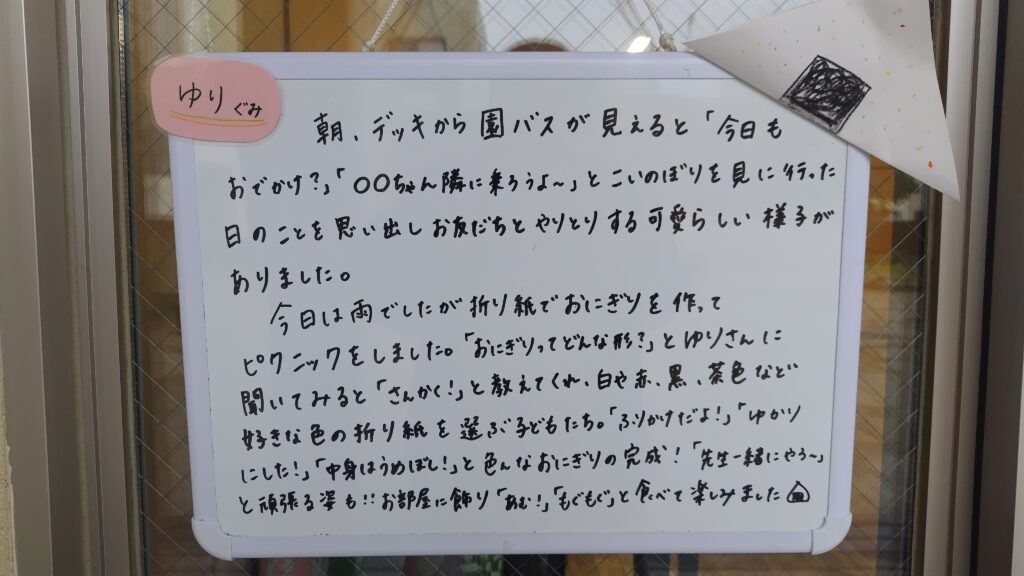 ゆりぐみ
朝、デッキから園バスが見えると「今日も
おでかけ?」「〇〇ちゃん隣に乗ろうよ〜」とこいのぼりを見に行った
日のことを思い出しお友だちとやりとりする可愛らしい様子が
ありました。
今日は雨でしたが折り紙でおにぎりを作って
ピクニックをしました。「おにぎりってどんな形?」とゆりさんに
聞いてみると「さんかく!」と教えてくれ、白や赤、黒、茶色など
好きな色の折り紙を選ぶ子どもたち。「ふりかけだよ!」「ゆかり
にした!」「中身はうめぼし!」と色んなおにぎりの完成!「先生一緒にやろ〜」
と頑張る姿も!!お部屋に飾り「あむ!」「もぐもぐ」と食べて楽しみました